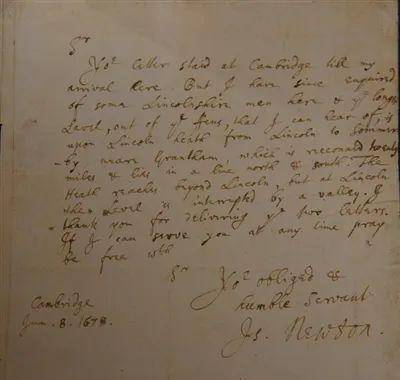 Sr
Yor letter staid at Cambridge till my
arrival here. But I have since enquired
of some Lincolnshire men here & ye longest
Level, out of ye fens, that I can hear of, is
upon Lincoln heath from Lincoln to
by neare Grantham, which is reccond twenty
miles & lies in a line north & south. The
Heath reaches beyond Lincoln, but at Lincoln
the Level is interrupted by a valley. I
thank you for delivering ye two letters.
If I can serve you at any time pray
be free wth
Sr
Yor obliged &
humble Servant
Is. Newton.
Cambridge
8. 1678.